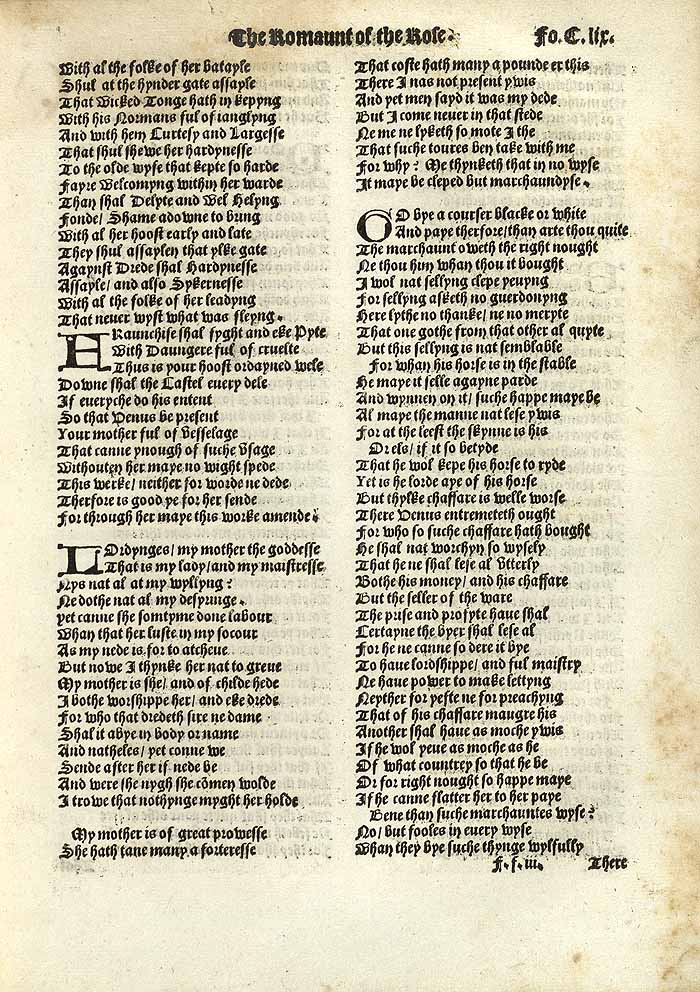 The Romaunt of the Rose. Fo. C. lix.
With al the folke of her batayle
Shul at the hynder gate assayle
That Wicked Tonge hath in kepyng
With his Normans ful of ianglyng
And with hem Curtesy and Largesse
That shul shewe her hardynesse
To the olde wyfe that kepte so harde
Fayre Welcomyng within her warde
Than shal Delyte and Wel Helyng
Fonde/ Shame adowne to bring
With al her hoost early and late
They shul assaylen that ylke gate
Agaynst Drede shal Hardynesse
Assayle/ and also Sykernesse
With al the folke of her leadyng
That never wyst what was fleyng.
FRaunchise shal fyght and eke Pyte
With Daungere ful of cruelte
Thus is your hoost ordayned wele
Downe shal the Castel every dele
If everyche do his entent
So that Venus be present
Your mother ful of vesselage
That canne ynough of suche vsage
Withouten her maye no wight spede
This werke/ neither for worde ne dede
Therfore is good ye for her sende
For through her maye this worke amende.
LOrdynges/ my mother the goddesse
That is my lady/ and my maistresse
Nys nat al at my wyllyng:
Ne dothe nat al my desyringe.
yet canne she somtyme done labour
Whan that her luste in my socour
As my nede is for to atcheve
But nowe I thynke her nat to greve
My mother is she/ and of childe hede
I bothe worshippe her/ and eke drede
For who that dredeth sire ne dame
Shal it abye in body or name
And natheles/ yet conne we
Sende after her if nede be
And were she nygh she cōmen wolde
I trowe that nothynge myght her holde
My mother is of great prowesse
She hath tane many a forteresse
That coste hath many a pounde er this
There I nas not present ywis
And yet men sayd it was my dede
But I come neuer in that stede
Ne me ne lyketh so mote I the
That suche toures ben take with me
For why? Me thynketh that in no wyse
It maye be cleped but marchaundyse.
GO bye a courser blacke or white
And paye therfore/ than arte thou quite
The marchaunt oweth the right nought
Ne thou him whan thou it bought
I wol nat sellyng clepe yeuyng
For sellyng asketh no guerdonyng
Here lythe no thanke/ ne no meryte
That one gothe from that other al quyte
But this sellyng is nat semblable
For whan his horse is in the stable
He maye it selle agayne parde
And wynnen on it/ suche happe maye be
Al maye the manne nat lese ywis
For at the leest the skynne is his
Or els/ if it so betyde
That he wol kepe his horse to ryde
Yet is he lorde aye of his horse
But thylke chaffare is welle worse
There Venus entremeteth ought
For who so suche chaffare hath bought
He shal nat worchyn so wysely
That he ne shal lese al vtterly
Bothe his money/ and his chaffare
But the seller of the ware
The prise and profyte haue shal
Certayne the byer shal lese al
For he ne canne so dere it bye
To haue lordshippe/ and ful maistry
Ne haue power to make lettyng
Neyther for yefte ne for preachyng
That of his chaffare maugre his
Another shal haue as moche ywis
If he wol yeue as moche as he
Of what countrey so that he be
Or for right nought so happe maye
If he canne flatter her to her paye
Bene than suche marchauntes wyse?
No/ but fooles in euery wyse
Whan they bye suche thynge wylfully
F. f. iii. There